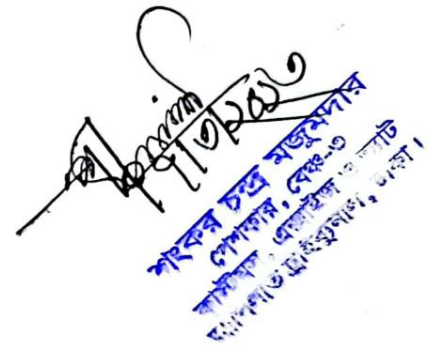 ৭।৩।২০১৩
শংকর চন্দ্র মজুমদার
পেশকার, বেঞ্চ-৩
কাস্টমস, এক্সাইজ ও ভ্যাট
আপীলাত ট্রাইব্যুনাল, ঢাকা।